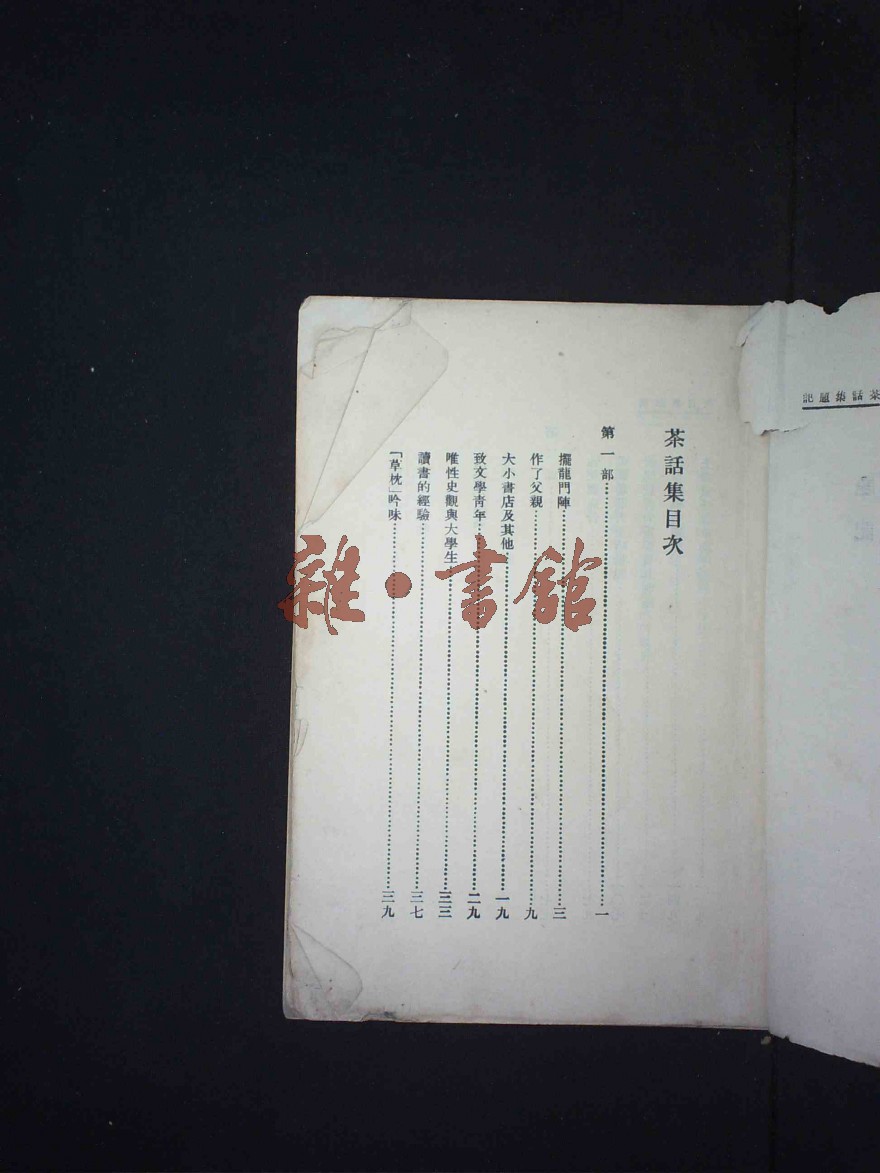 茶話集題記
茶話集目次
第一部……一
擺龍門陣……三
作了父親……九
大小書店及其他……一九
致文學青年……二九
唯性史觀與大學生……三三
讀書的經驗……三七
「草枕」吟味……三九
雜·書館